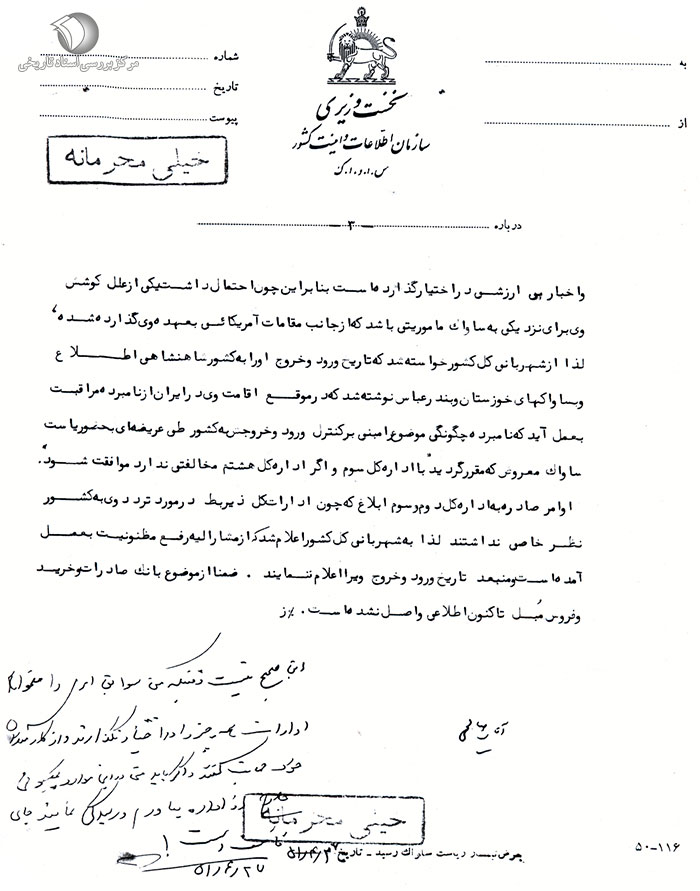 مرکز بررسی اسناد تاریخی
به
از
نخست وزیری
سازمان اطلاعات و امنیت کشور
س.ا.و.ا.ک
شماره
تاریخ
پیوست
خیلی محرمانه
درباره
— ۳ —
واخبار بی ارزشی دراختیارگذارده است بنابراین چون احتمال داشت یکی ازعلل کوشش
وی برای نزدیکی به ساواك ماموریتی باشد که ازجانب مقامات آمریکائی بعهده وی گذارده شده ،
لذا ازشهربانی کل کشورخواسته شد که تاریخ ورود وخروج اورا به کشورشاهنشاهی اطلاع
وبساواکهای خوزستان وبندرعباس نوشته شد که درموقع اقامت وی درایران ازنامبرده مراقبت
بعمل آید که نامبرده چگونگی موضوع را مبنی برکنترل ورود وخروجش به کشور طی عریضه ای بحضورریاست
ساواك معروض که مقررگردید با اداره کل سوم و اگر اداره کل هشتم مخالفتی ندارد موافقت شود.
اوامر صادره به اداره کل دوم وسوم ابلاغ که چون ادارات کل ذیربط درمورد تردد وی به کشور
نظر خاصی نداشتند لذا به شهربانی کل کشور اعلام شد که ازمشارالیه رفع مظنونیت بعمل
آمده است ومنبعد تاریخ ورود وخروج ویرا اعلام ننمایند . ضمنا ازموضوع بانك صادرات وخرید
وفروش مبل تاکنون اطلاعی واصل نشده است . /ز
صحیح نیست
را
ادارات
خیلی محرمانه
بعرض تیمسار ریاست ساواك رسید - تاریخ
۵۰-۱۱۶